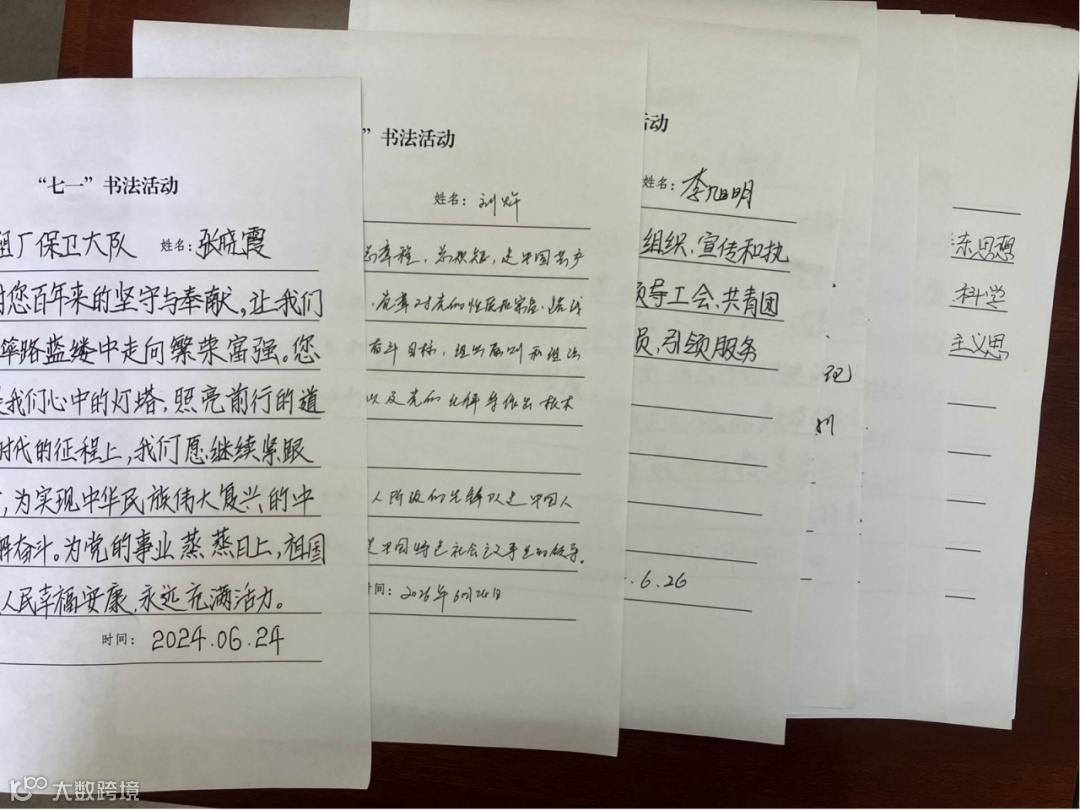 “七一”书法活动
厂保卫大队 姓名：张晓霞
对您百年来的坚守与奉献，让我们
筚路蓝缕中走向繁荣富强。您
是我们心中的灯塔，照亮前行的道
时代的征程上，我们愿继续紧跟
，为实现中华民族伟大复兴的中
奋斗。为党的事业蒸蒸日上，祖国
人民幸福安康，永远充满活力。
时间：2024.06.24
”书法活动
姓名：刘
总章程，总规矩，是中国共产
党章对党的性质和宗旨、路线
奋斗目标，组织原则和组织
以及党的
人阶级的先锋队是中国人
是中国特色社会主义事业的领导
时间：
活动
姓名：李旭明
组织、宣传和执
领导工会、共青团
员，引领服务
.6.26
记
州
东思想
科学
主义思
大数跨境